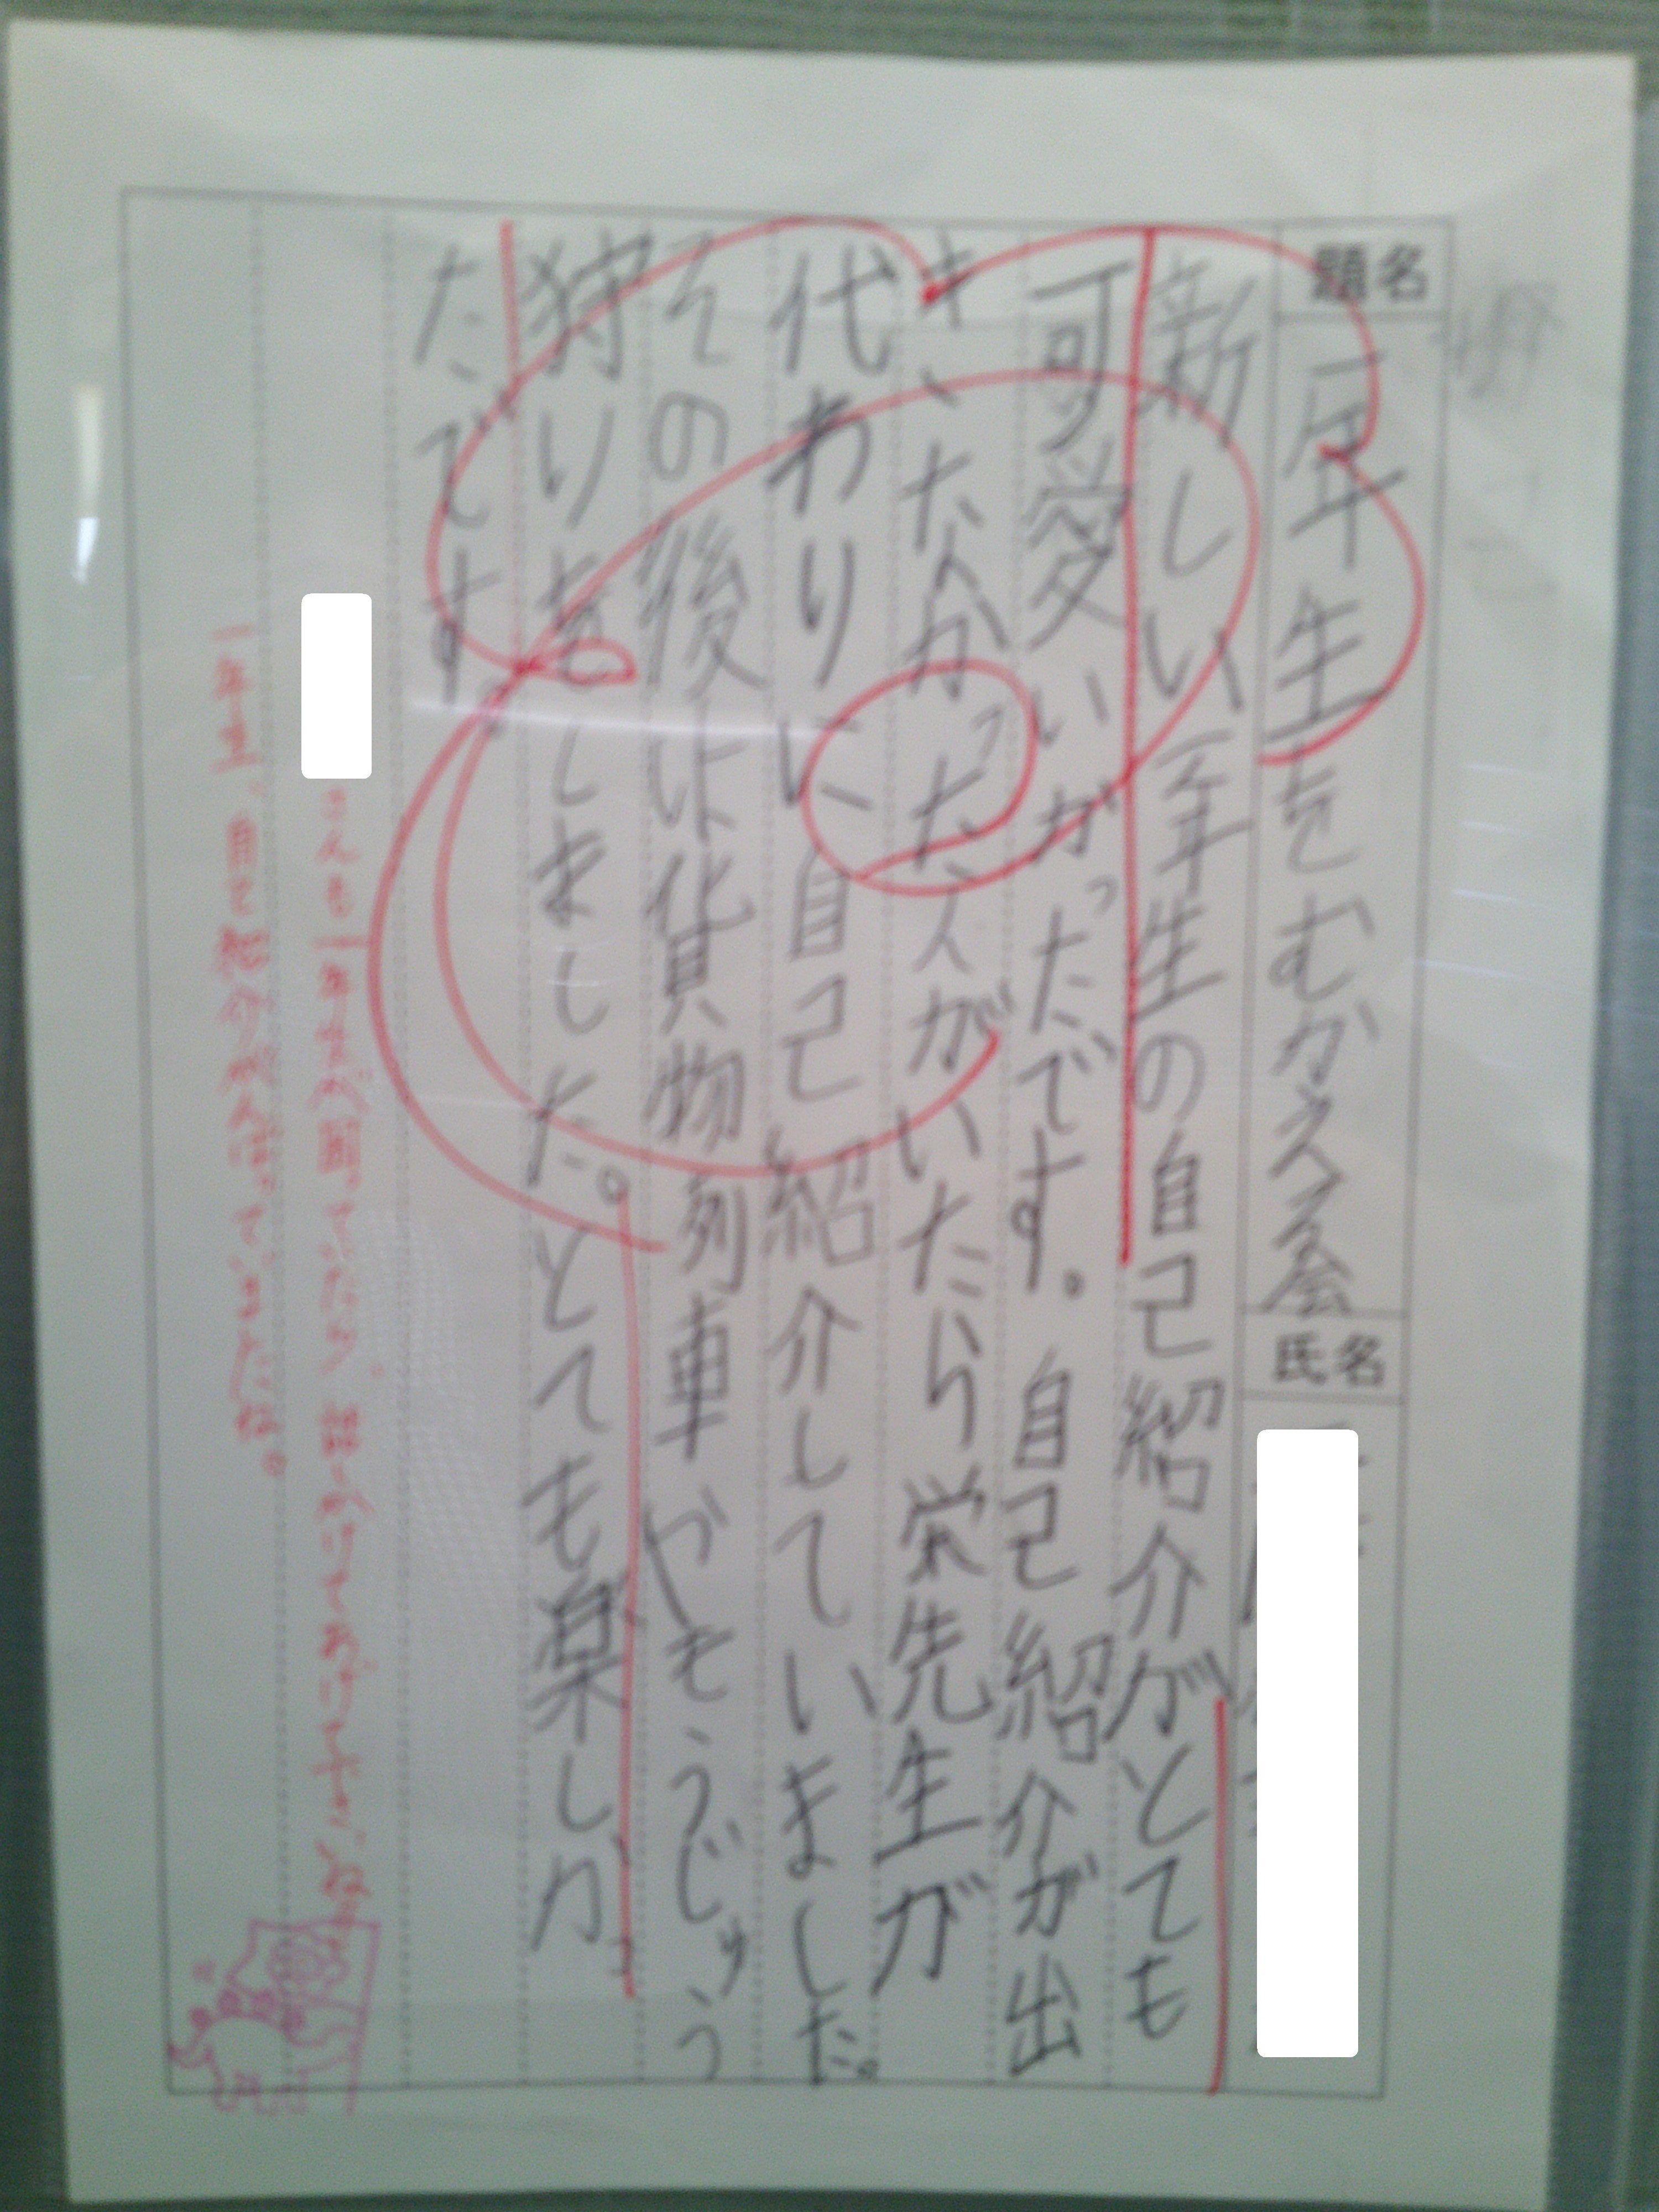 題名
一年生をむかえる会
氏名
新しい一年生の自己紹介がとても
可愛いかっただです。自己紹介が出
きったなかった人がいたら栄先生が
代わりに自己紹介していました。
その後は貨物列車やもうじゅう
狩りをしました。とても楽しかっ
たでです。
さんも一年生が困っていたら、話しかけてあげて下さいね
一年生、自己紹介がんばっていましたね。